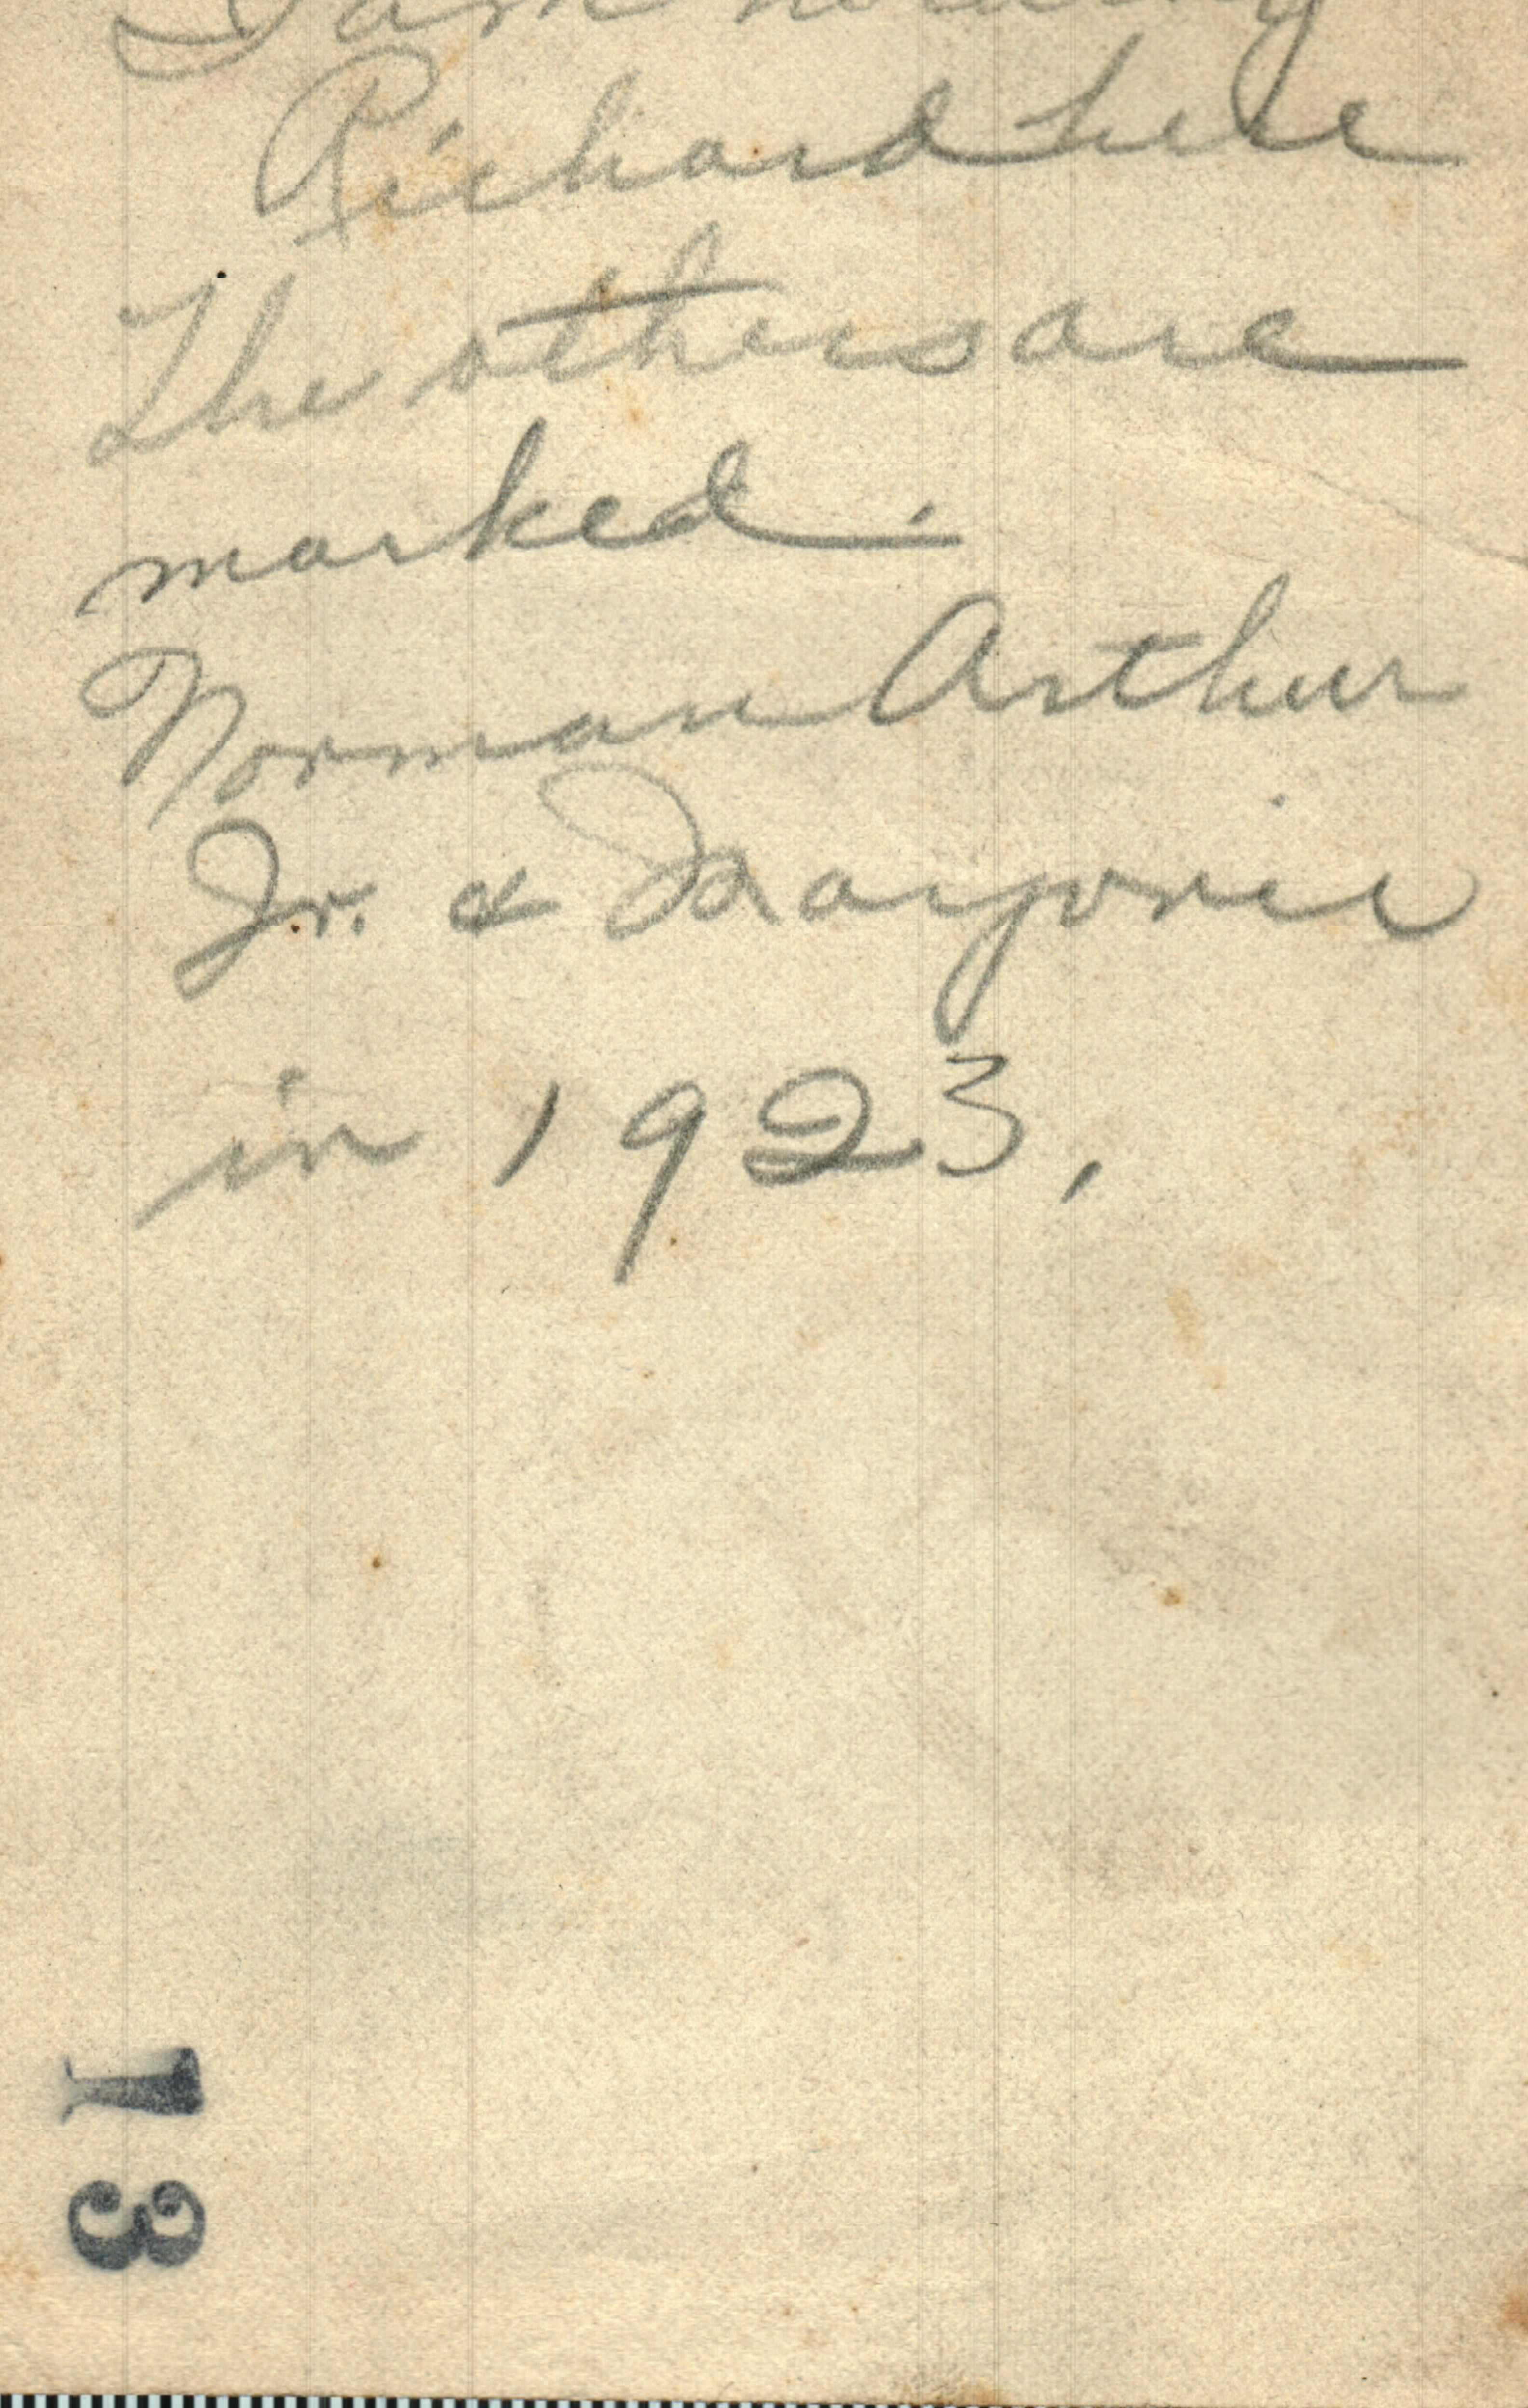 I am holding
Richard here
The others are
marked.
Norman Arthur
Jr. & Marjorie
in 1923.
13